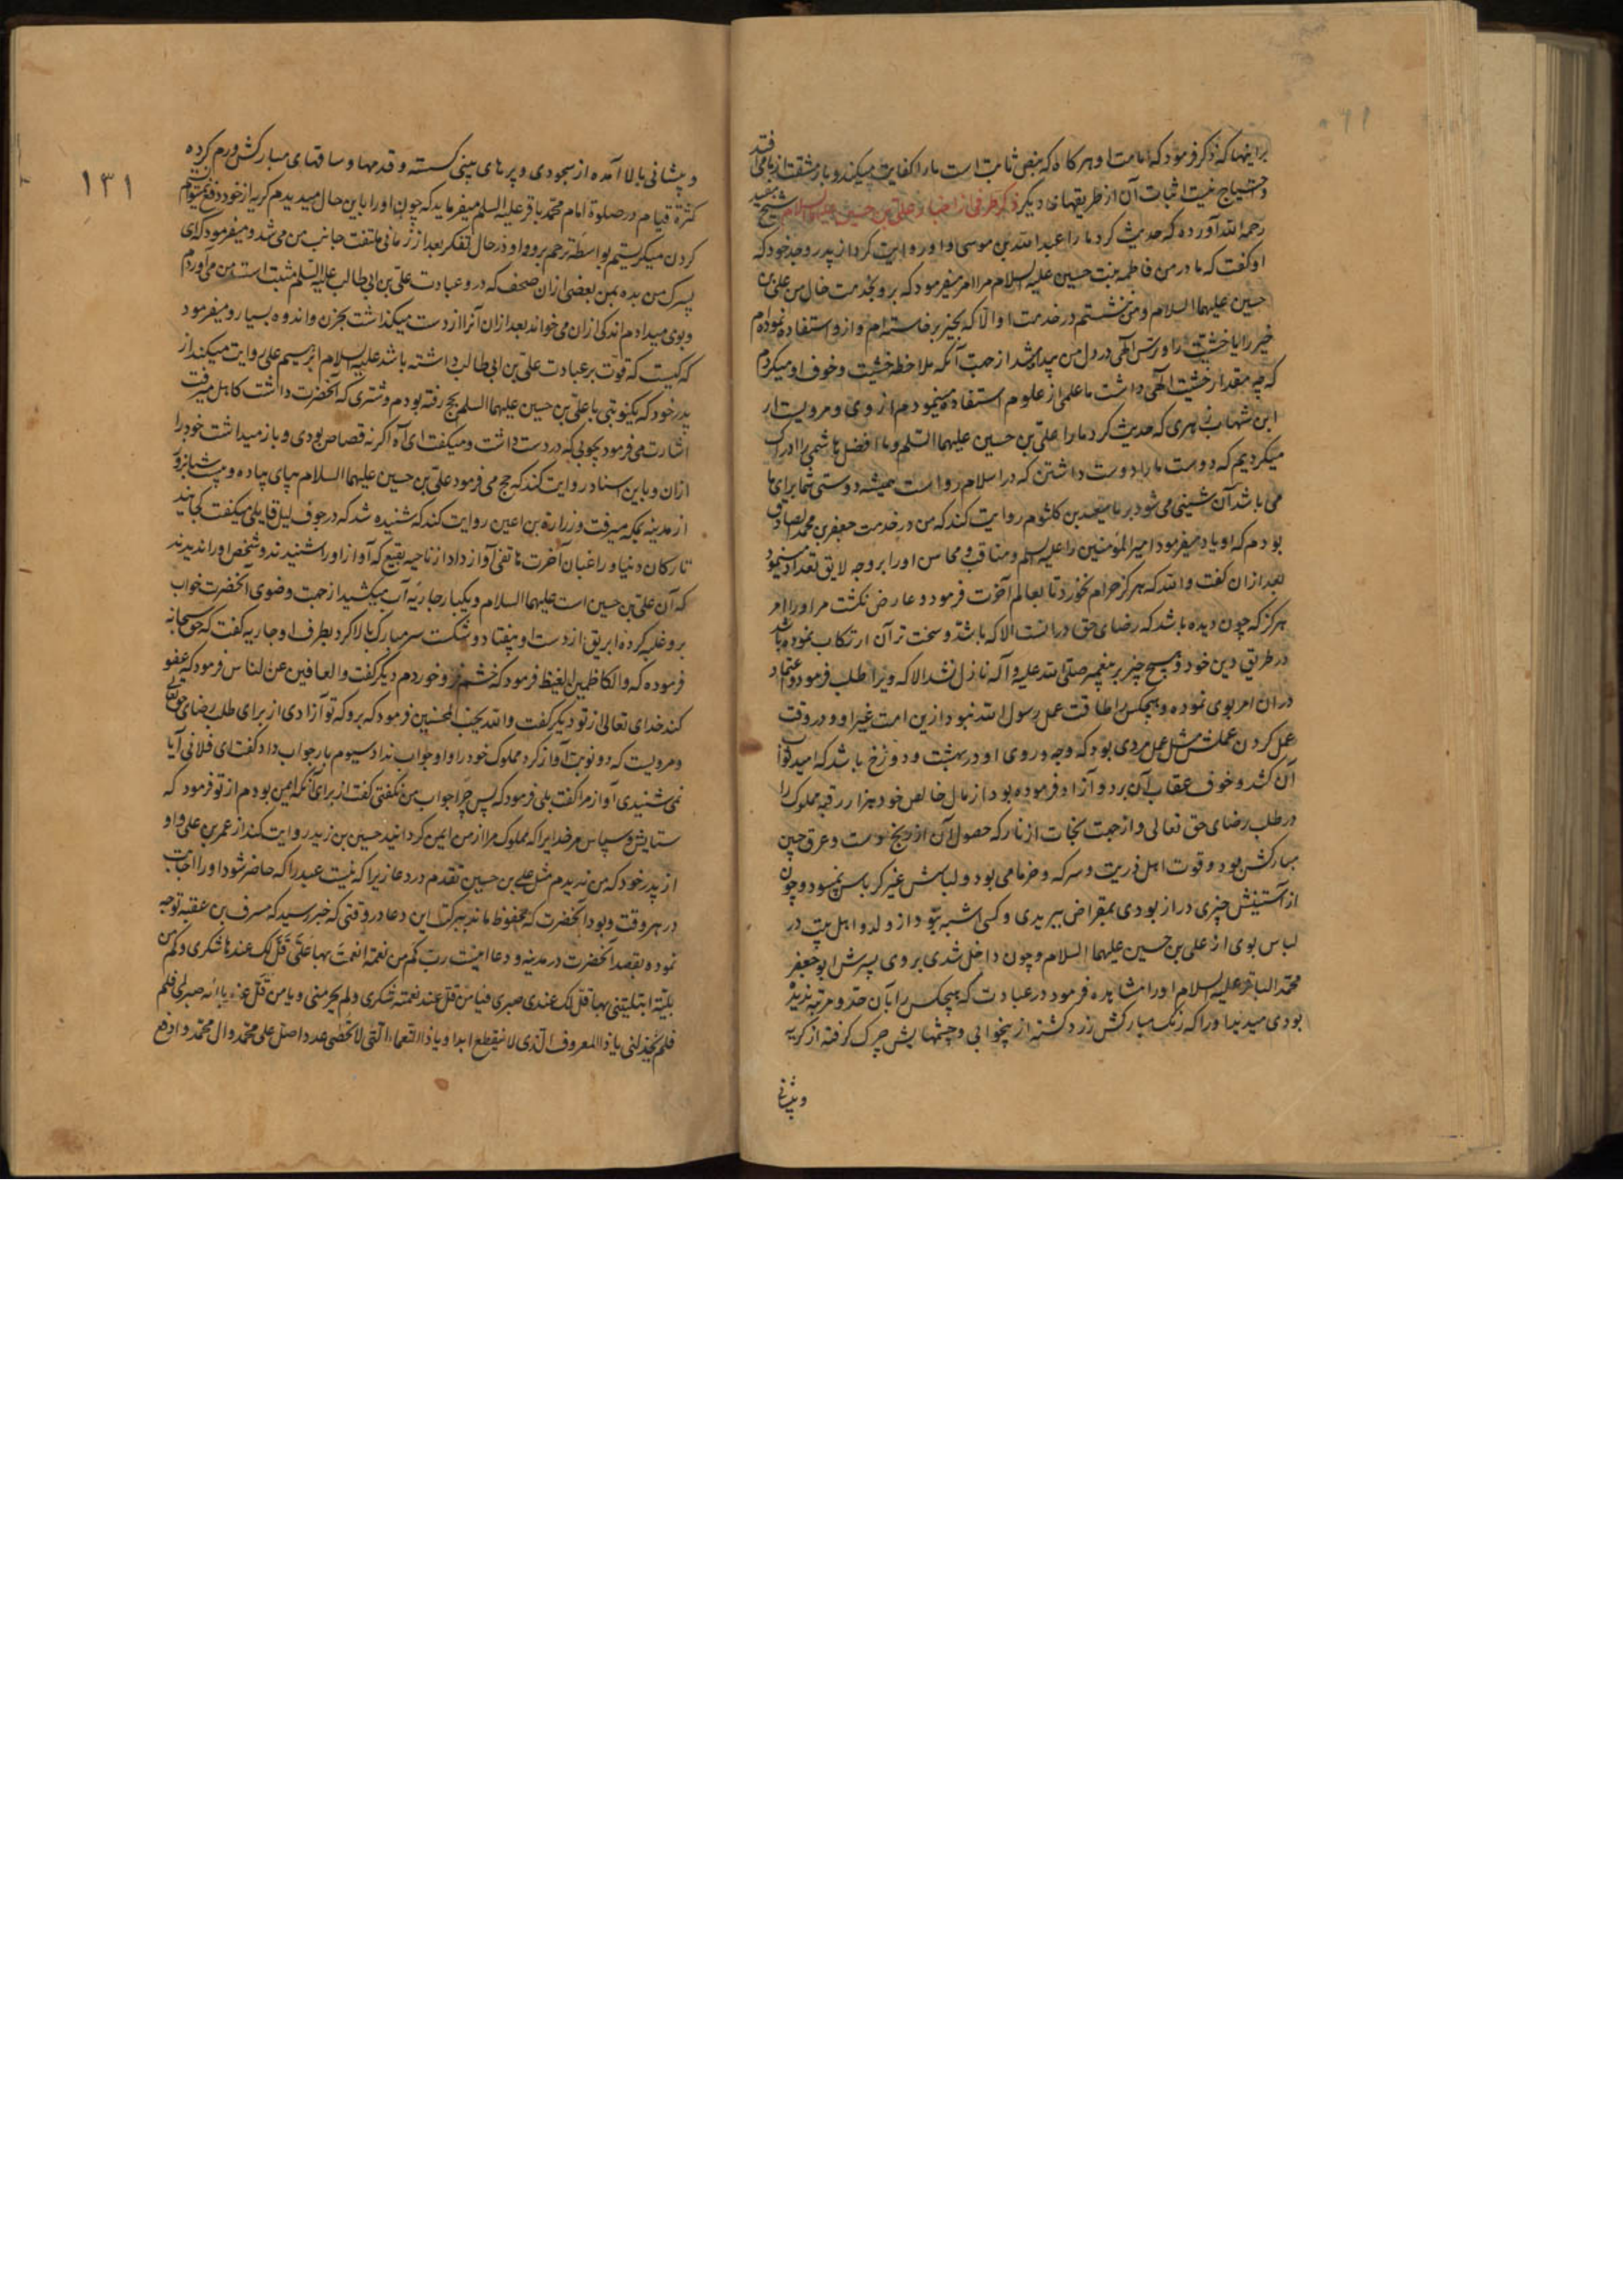 براینها که ذکر فرمود که امامت او هرگاه که بنص ثابت است ما را کفایت میکند و بار مشقت از پا می افتد
و احتیاج نیست اثبات آن از طریقهای دیگر ذکر طرفی از اخبار علی بن حسین علیهما السلام شیخ مفید
رحمه الله آورده که حدیث کرد ما را عبد الله بن موسی و او روایت کرد از پدر و جد خود که
او گفت که مادر من فاطمه بنت حسین علیه السلام مرا امر میفرمود که برو بخدمت خال من علی بن
حسین علیهما السلام و من ننشستم در خدمت او الا که بخیر برخاسته ام و ازو استفاده نموده ام
خیر را یا خشیت را و ترس الهی در دل من پیدا میشد از جهت آنکه ملاحظه خشیت و خوف او میکردم
که چه مقدار خشیت الهی داشت یا علمی از علوم استفاده مینمودم از وی و مرویست از
ابن شهاب زهری که حدیث کرد ما را علی بن حسین علیهما السلم و ما افضل هاشمی را ادراک
میکردیم که دوست ما را دوست داشتن که در اسلام رواست همیشه دوستی شما برای ما
می باشد آن شینی می شود بر ما سعید بن کلثوم روایت کند که من در خدمت جعفر بن محمد الصادق
بودم که او یاد میفرمود امیر المؤمنین را علیه السلم و مناقب و محاسن او را بر وجه لایق تعداد مینمود
بعد از آن گفت والله که هرگز حرام نخورد تا بعالم آخرت فرمود و عارض نگشت مر او را امر
هرگز که چون دیده باشد که رضای حق در آنست الا که باشد و سخت تر آن ارتکاب نموده باشد
در طریق دین خود و هیچ چیز بر پیغمبر صلی الله علیه و آله نازل نشد الا که ویرا طلب فرمود و اعتماد
در ان امر بوی نموده و هیچکس را طاقت عمل رسول الله نبود ازین امت غیر او و در وقت
عمل کردن عملش مثل عمل مردی بود که وجه و روی او در بهشت و دوزخ باشد که امید ثواب
آن کشد و خوف عقاب آن برد و آزاد فرموده بود از مال خالص خود هزار رقبه مملوک را
در طلب رضای حق تعالی و از جهت نجات از نار که حصول آن از رنج دست و عرق جبین
مبارکش بود و قوت اهل ذریت و سرکه و خرما می بود و لباسش غیر کرباس نمی بود و چون
از آستینش چیزی دراز بودی بمقراض ببریدی و کسی اشبه نبود از ولد و اهل بیت در
لباس بوی از علی بن حسین علیهما السلام و چون داخل شدی بر وی پسرش ابو جعفر
محمد الباقر علیه السلام او را مشاهده فرمود در عبادت که هیچکس را بآن حد و مرتبه ندیده
بودی میدید او را که رنگ مبارکش زرد گشته از بیخوابی و چشمهایش چرک گرفته از گریه
و پیشانی
۱۳۱
و پیشانی بالا آمده از سجودی و پرهای بینی گسسته و قدمها و ساقهای مبارکش ورم کرده
کثرة قیام در صلوة امام محمد باقر علیه السلم میفرماید که چون او را باین حال میدیدم گریه از خود دفع نمیتوانستم
کردن میگریستم بواسطه ترحم برو و او در حال تفکر بعد از زمانی ملتفت جانب من می شد و میفرمود که ای
پسرک من بده بمن بعضی از ان صحف که درو عبادت علی بن ابی طالب علیه السلم مثبت است من می آوردم
و بوی میدادم اندکی از ان می خواند بعد از ان آنرا از دست میگذاشت بحزن و اندوه بسیار و میفرمود
که کیست که قوت بر عبادت علی بن ابی طالب داشته باشد علیه السلام ابرهیم علی روایت میکند از
پدر خود که یکنوبتی با علی بن حسین علیهما السلم بحج رفته بودم و شتری که آنحضرت داشت کاهل میرفت
اشارت می فرمود بچوبی که در دست داشت و میگفت ای آه اگر نه قصاص بودی و باز میداشت خود را
از ان و باین اسناد روایت کند که حج می فرمود علی بن حسین علیهما السلام بپای پیاده و بیست شبانروز
از مدینه بمکه میرفت و زرارة بن اعین روایت کند که شنیده شد که در جوف لیل قایلی میگفت کجااند
تارکان دنیا و راغبان آخرت هاتفی آواز داد از ناحیه بقیع که آواز او را شنیدند و شخص او را ندیدند
که آن علی بن حسین است علیهما السلام و یکبار جاریه آب میکشید از جهت وضوی آنحضرت خواب
برو غلبه کرده ابریق از دست او بیفتاد و شکست سر مبارک بالا کرد بطرف او جاریه گفت که حق سبحانه
فرموده که والکاظمین الغیظ فرمود که خشم فرو خوردم دیگر گفت والعافین عن الناس فرمود که عفو
کند خدای تعالی از تو دیگر گفت والله یحب المحسنین فرمود که برو که تو آزادی از برای طلب رضای حق تعالی
و مرویست که دو نوبت آواز کرد مملوک خود را و او جواب نداد سیوم بار جواب داد گفت ای فلانی آیا
نمی شنیدی آواز مرا گفت بلی فرمود که پس چرا جواب من نگفتی گفت از برای آنکه ایمن بودم از تو فرمود که
ستایش و سپاس مر خدایرا که مملوک مرا از من ایمن گردانید حسین بن زید روایت کند از عمر بن علی و او
از پدر خود که من ندیدم مثل علی بن حسین تقدم در دعا زیرا که نیست عبد را که حاضر شود او را اجابت
در هر وقت و بود آنحضرت که محفوظ ماند ببرکت این دعا در وقتی که خبر رسید که مسرف بن عقبه توجه
نموده بقصد آنحضرت در مدینه و دعا اینست رب کم من نعمة انعمت بها علی قل لک عندها شکری و کم من
بلیة ابتلیتنی بها قل لک عندی صبری فیا من قل عند نعمته شکری و لم یحرمنی و یا من قل عند بلائه صبری فلم
فلم یخذلنی یا ذا المعروف الذی لا ینقطع ابدا و یا ذا النعماء التی لا تحصی عددا صل علی محمد و ال محمد و ادفع